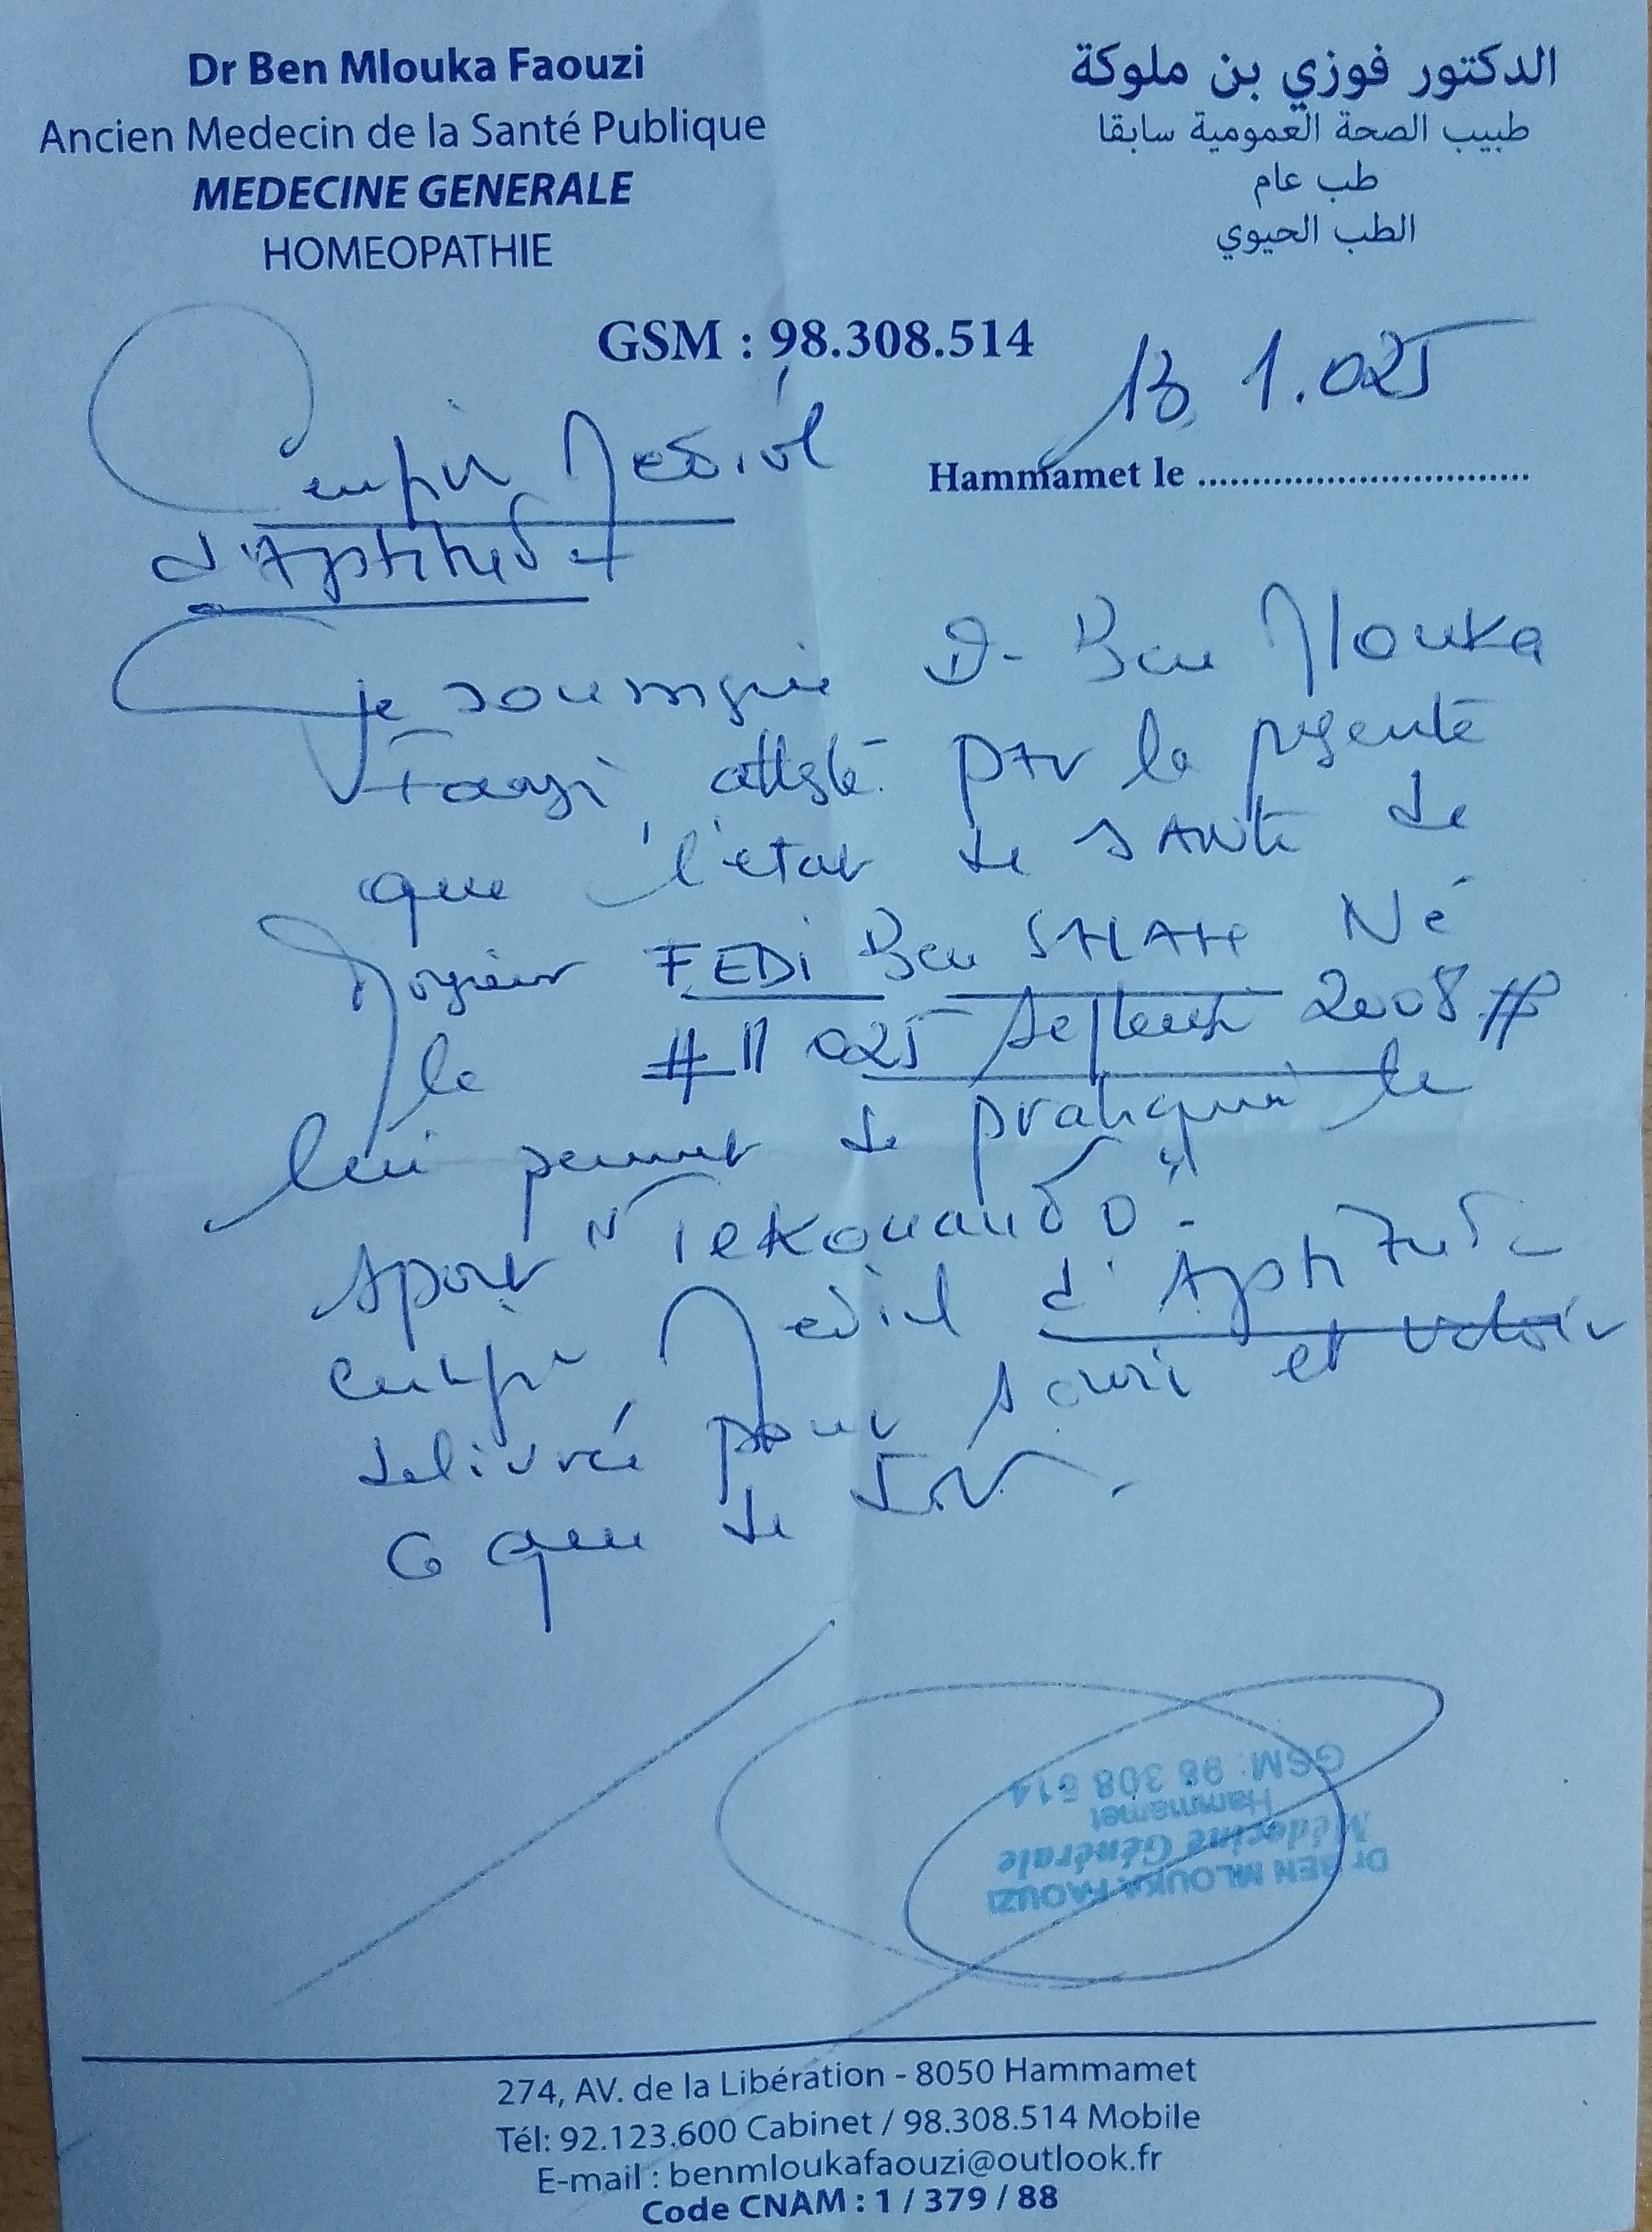 Dr Ben Mlouka Faouzi
Ancien Medecin de la Santé Publique
MEDECINE GENERALE
HOMEOPATHIE
الدكتور فوزي بن ملوكة
طبيب الصحة العمومية سابقا
طب عام
الطب الحيوي
GSM : 98.308.514
13 1.025
Hammamet le ................................
Medical
d'Aptitude
Je soussigné Dr Ben Mlouka
Faouzi atteste par la présente
que l'état de santé de
Monsieur FEDI Ben Né
le # 11 Septembre 2008 #
lui permet de pratiquer le
sport "Tekouando".
Medical d'Aptitude
delivré pour servir et valoir
ce que de droit.
Dr BEN MLOUKA FAOUZI
Médecine Générale
Hammamet
GSM: 98 308 514
274, AV. de la Libération - 8050 Hammamet
Tél: 92.123.600 Cabinet / 98.308.514 Mobile
E-mail : benmloukafaouzi@outlook.fr
Code CNAM : 1 / 379 / 88